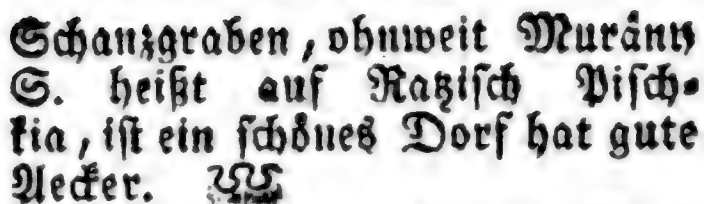 Schanzgraben, ohnweit Muránÿ
S. heißt auf Ratzisch Pisch-
kia, ist ein schönes Dorf hat gute
Aecker.